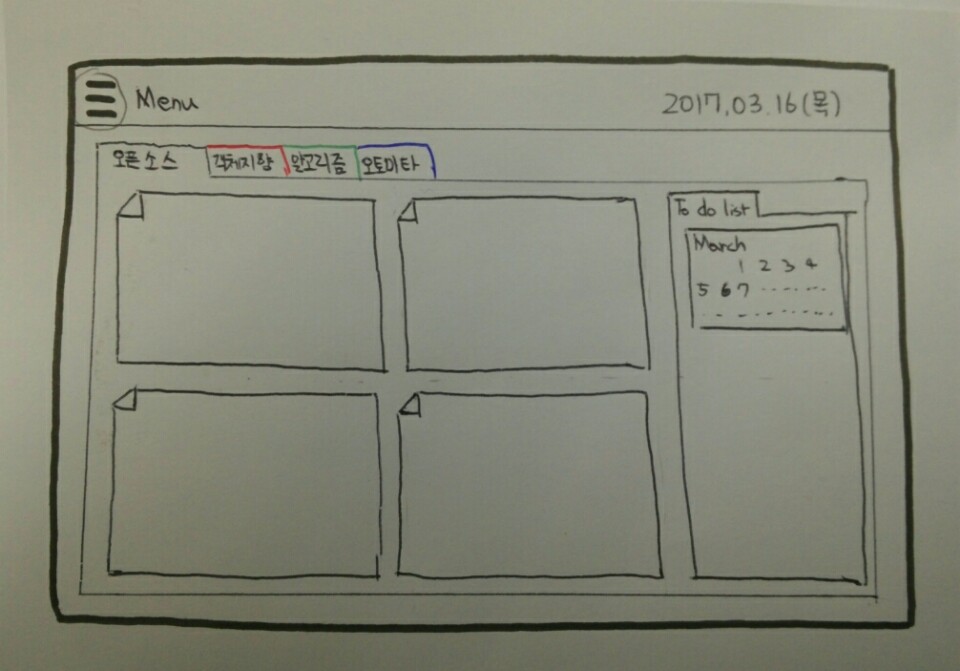 Menu
2017.03.16(목)
오픈소스 객체지향 알고리즘 오토마타
To do list
March
1 2 3 4
5 6 7